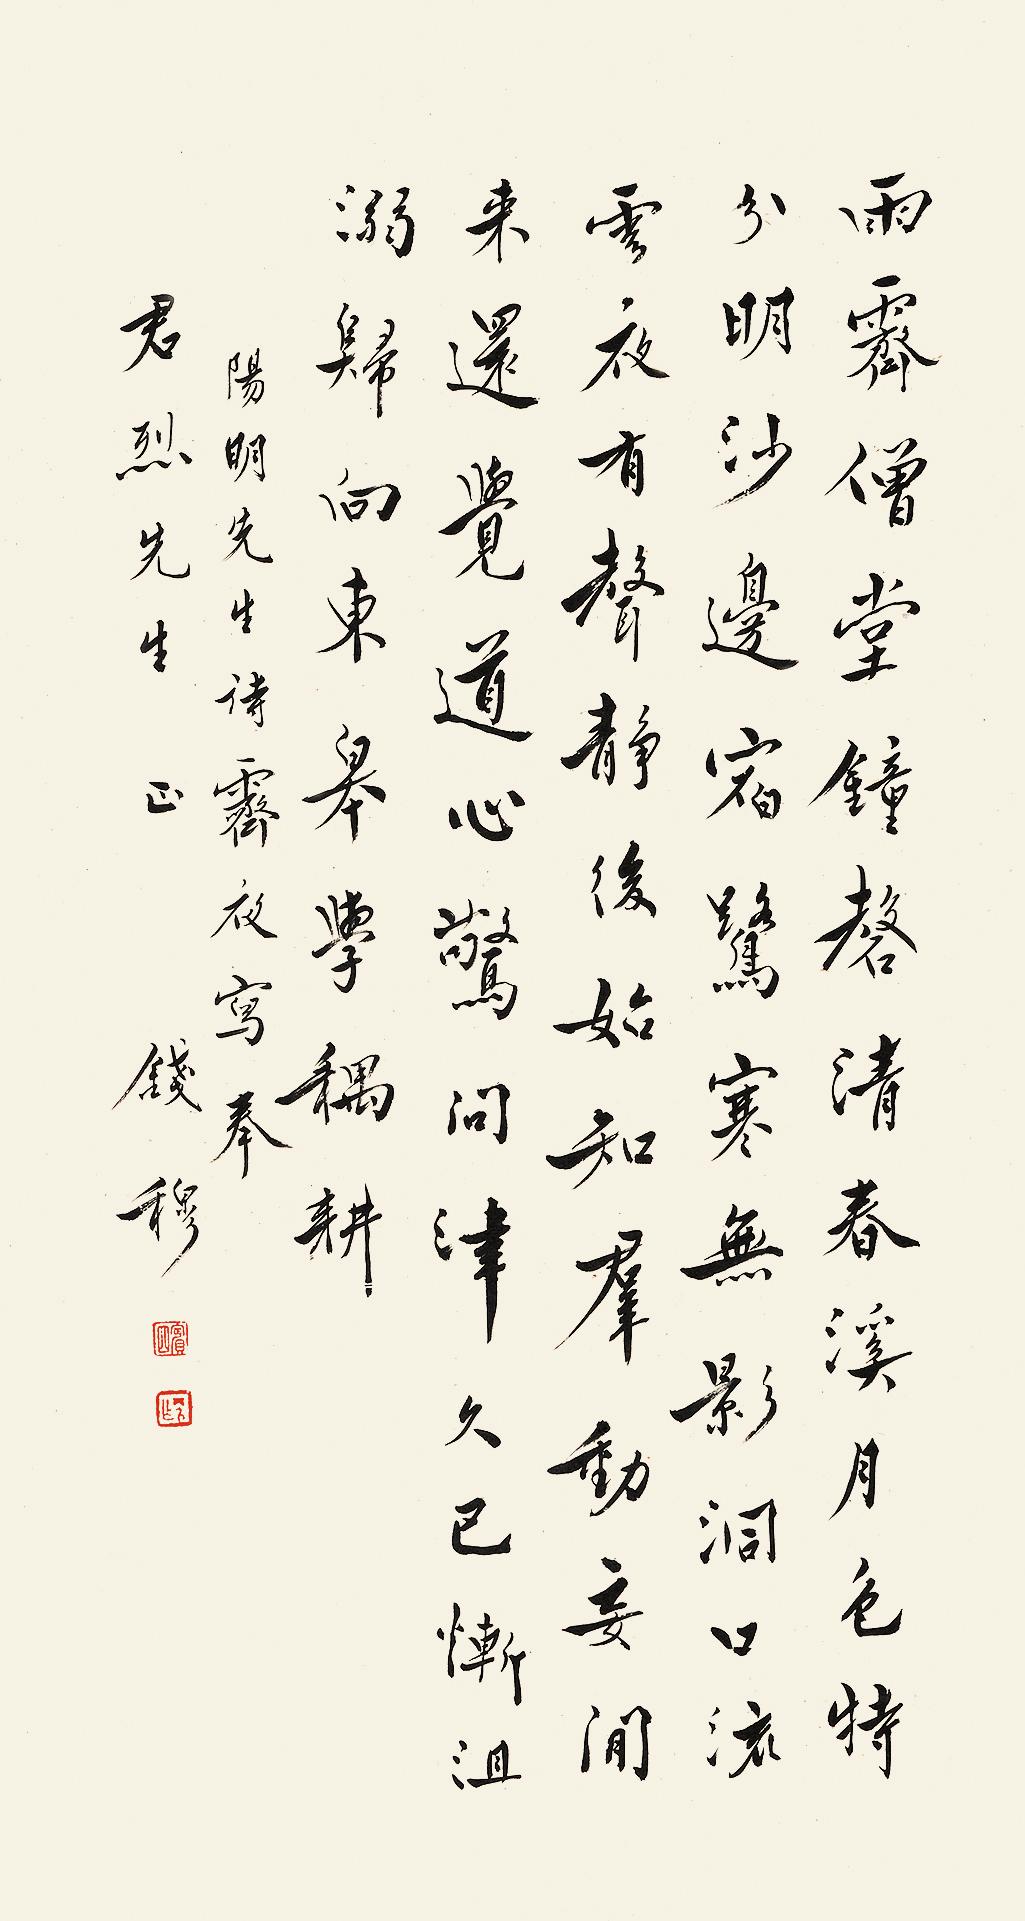 雨霽僧堂鐘磬清春溪月色特
分明沙邊宿鷺寒無影洞口流
雲夜有聲靜後始知羣動妄閒
来還覺道心驚問津久已慚沮
溺歸向東皋學耦耕
陽明先生詩霽夜寫奉
君烈先生正 錢穆